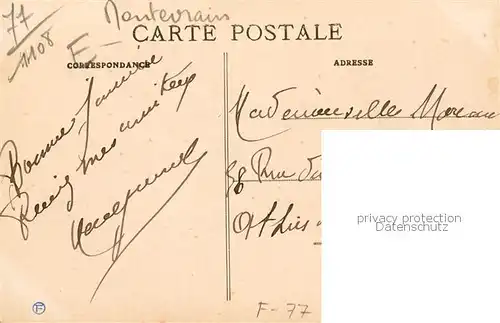 77
1108
E- Montevrain
CARTE POSTALE
CORRESPONDANCE
ADRESSE
Bonne Année
mes amitiés
Mademoiselle Moreau
58 Rue du
Athis
privacy protection
F-77
F